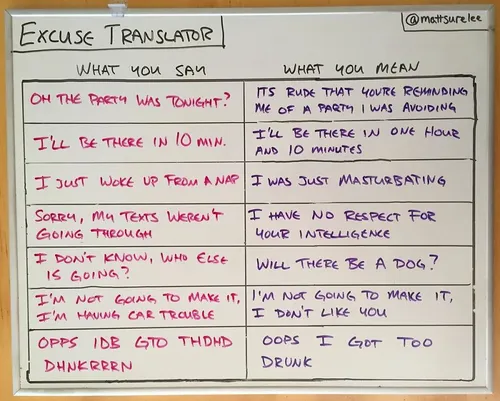 @mattsurelee
EXCUSE TRANSLATOR
WHAT YOU SAY
WHAT YOU MEAN
OH THE PARTY WAS TONIGHT?
ITS RUDE THAT YOU'RE REMINDING
ME OF A PARTY I WAS AVOIDING
I'LL BE THERE IN 10 MIN.
I'LL BE THERE IN ONE HOUR
AND 10 MINUTES
I JUST WOKE UP FROM A NAP
I WAS JUST MASTURBATING
SORRY, MY TEXTS WEREN'T
GOING THROUGH
I HAVE NO RESPECT FOR
YOUR INTELLIGENCE
I DON'T KNOW, WHO ELSE
IS GOING?
WILL THERE BE A DOG?
I'M NOT GOING TO MAKE IT,
I'M HAVING CAR TROUBLE
I'M NOT GOING TO MAKE IT,
I DON'T LIKE YOU
OPPS IDB GTO THDHD
DHNKRRRN
OOPS I GOT TOO
DRUNK